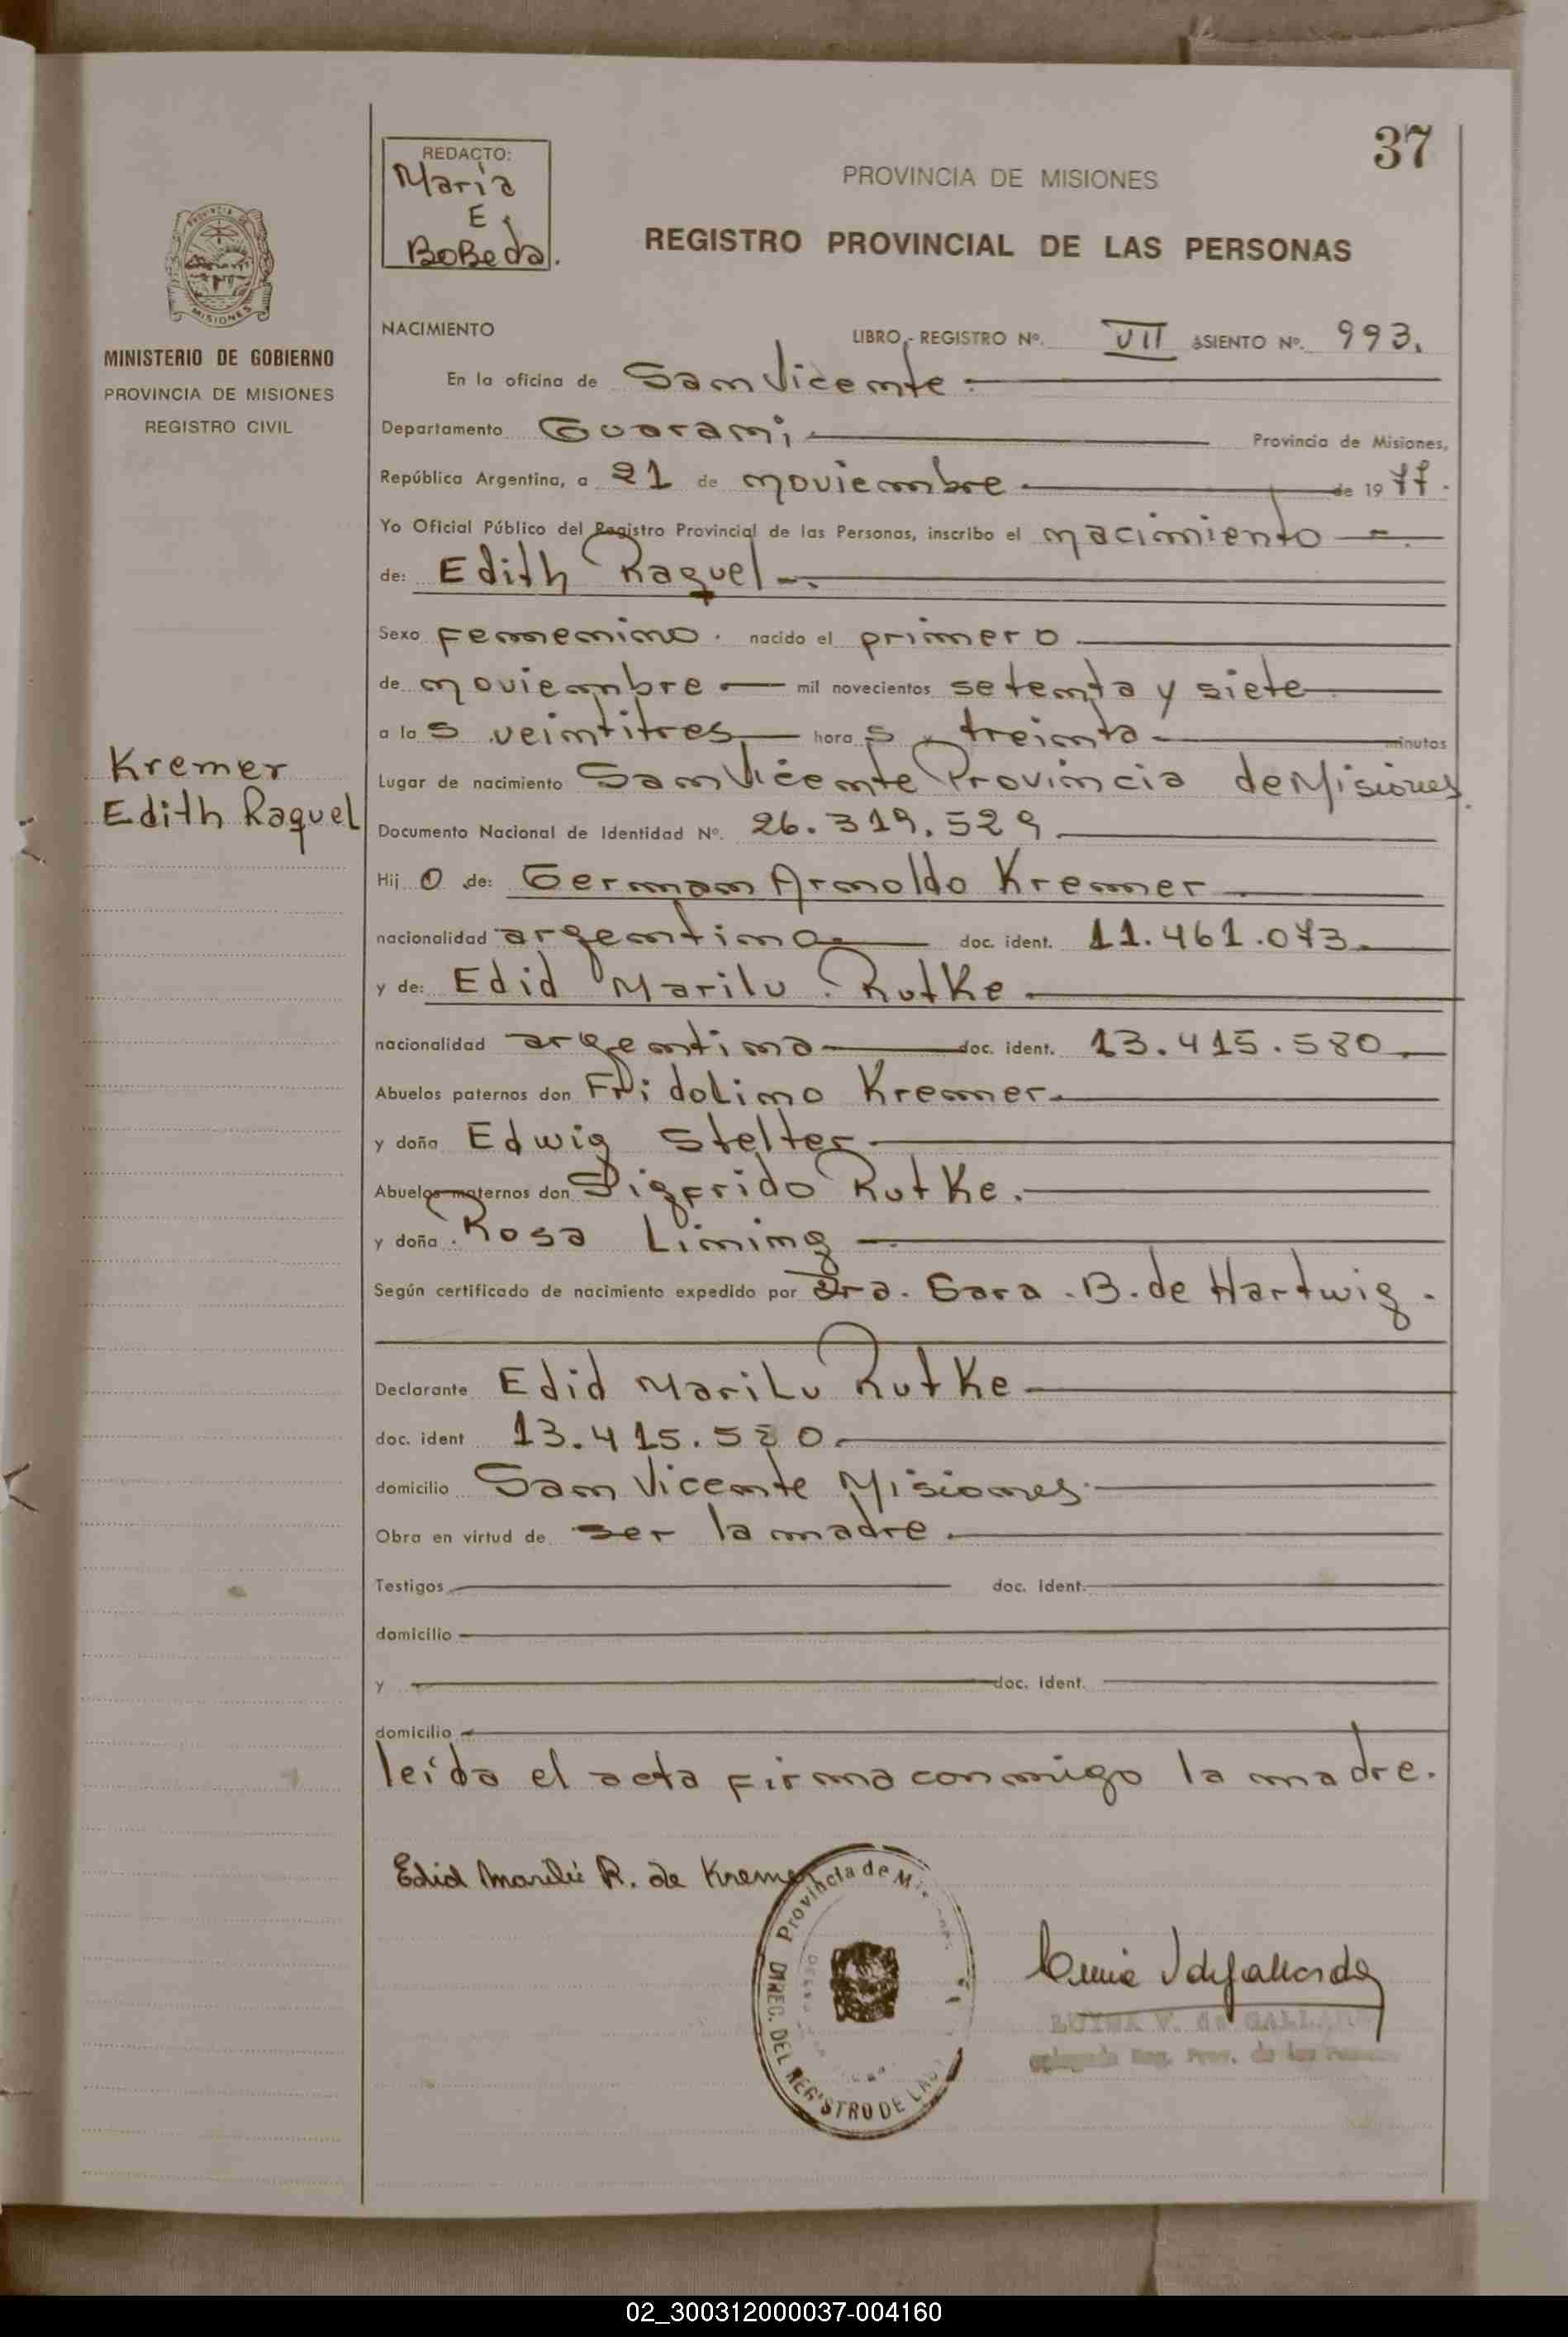 37
REDACTO:
María
E.
BoBeda.
PROVINCIA DE MISIONES
REGISTRO PROVINCIAL DE LAS PERSONAS
PROVINCIA DE MISIONES
MINISTERIO DE GOBIERNO
PROVINCIA DE MISIONES
REGISTRO CIVIL
Kremer
Edith Raquel
NACIMIENTO LIBRO - REGISTRO Nº. VII ASIENTO Nº. 993.
En la oficina de San Vicente.
Departamento Guarani Provincia de Misiones,
República Argentina, a 21 de noviembre de 1977.
Yo Oficial Público del Registro Provincial de las Personas, inscribo el nacimiento
de: Edith Raquel
Sexo femenino. nacido el primero
de noviembre mil novecientos setenta y siete
a las veintitres horas y treinta minutos
Lugar de nacimiento San Vicente Provincia de Misiones.
Documento Nacional de Identidad Nº. 26.319.529
Hijo de: German Arnoldo Kremer
nacionalidad argentina doc. ident. 11.461.073.
y de: Edid Marilu Rutke
nacionalidad argentina doc. ident. 13.415.580
Abuelos paternos don Fridolino Kremer
y doña Edwig Stelter
Abuelos maternos don Sigfrido Rutke.
y doña Rosa Liming
Según certificado de nacimiento expedido por Dra. Sara B. de Hartwig.
Declarante Edid Marilu Rutke
doc. ident 13.415.580
domicilio San Vicente Misiones
Obra en virtud de ser la madre.
Testigos doc. Ident.
domicilio
y doc. Ident.
domicilio
leída el acta firma conmigo la madre.
Edid Marilú R. de Kremer
Provincia de
DIREC. DEL REGISTRO DE LAS
LUISA V. de
Reg. Prov. de las
02_300312000037-004160